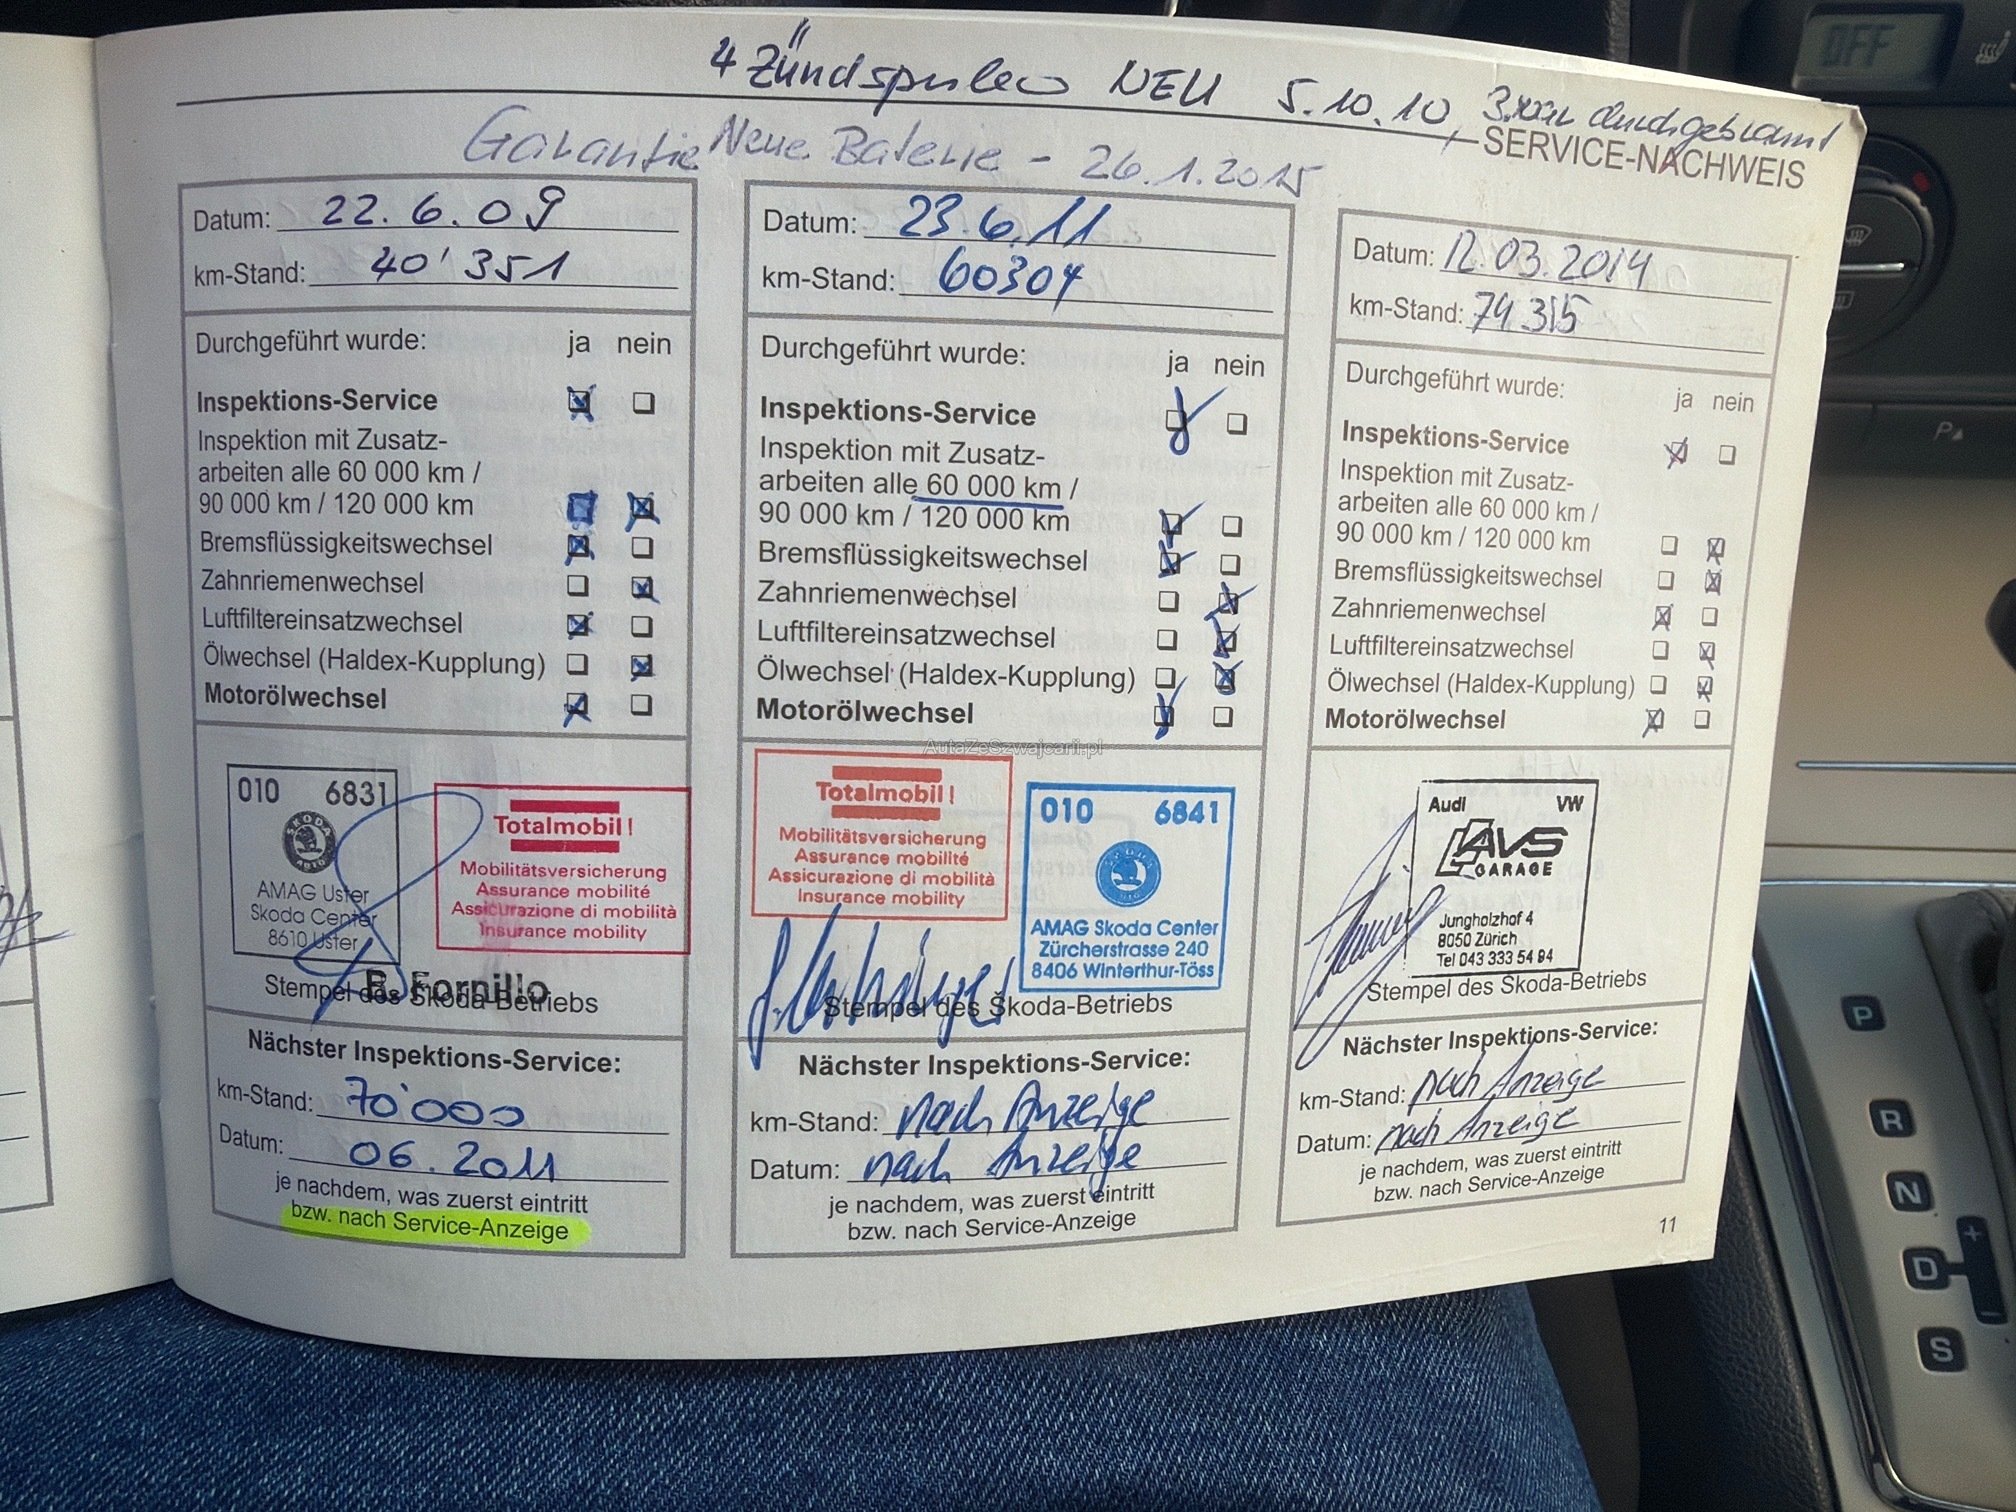 4 Zündspulen NEU 5.10.10, 3. durchgebrannt
SERVICE-NACHWEIS
Garantie Neue Baterie - 26.1.2015
Datum: 22.6.09
km-Stand: 40'351
Durchgeführt wurde: ja nein
Inspektions-Service
Inspektion mit Zusatz-
arbeiten alle 60 000 km /
90 000 km / 120 000 km
Bremsflüssigkeitswechsel
Zahnriemenwechsel
Luftfiltereinsatzwechsel
Ölwechsel (Haldex-Kupplung)
Motorölwechsel
010 6831
SKODA
AUTO
AMAG Uster
Skoda Center
8610 Uster
Totalmobil!
Mobilitätsversicherung
Assurance mobilité
Assicurazione di mobilità
Insurance mobility
B. Fornillo
Stempel des Škoda-Betriebs
Nächster Inspektions-Service:
km-Stand: 70'000
Datum: 06.2011
je nachdem, was zuerst eintritt
bzw. nach Service-Anzeige
Datum: 23.6.11
km-Stand: 60304
Durchgeführt wurde: ja nein
Inspektions-Service
Inspektion mit Zusatz-
arbeiten alle 60 000 km /
90 000 km / 120 000 km
Bremsflüssigkeitswechsel
Zahnriemenwechsel
Luftfiltereinsatzwechsel
Ölwechsel (Haldex-Kupplung)
Motorölwechsel
AutaZeSzwajcarii.pl
Totalmobil!
Mobilitätsversicherung
Assurance mobilité
Assicurazione di mobilità
Insurance mobility
010 6841
AMAG Skoda Center
Zürcherstrasse 240
8406 Winterthur-Töss
Stempel des Škoda-Betriebs
Nächster Inspektions-Service:
km-Stand: nach Anzeige
Datum: nach Anzeige
je nachdem, was zuerst eintritt
bzw. nach Service-Anzeige
Datum: 12.03.2014
km-Stand: 74315
Durchgeführt wurde:
ja nein
Inspektions-Service
Inspektion mit Zusatz-
arbeiten alle 60 000 km /
90 000 km / 120 000 km
Bremsflüssigkeitswechsel
Zahnriemenwechsel
Luftfiltereinsatzwechsel
Ölwechsel (Haldex-Kupplung)
Motorölwechsel
Audi VW
AVS
GARAGE
Jungholzhof 4
8050 Zürich
Tel 043 333 54 94
Stempel des Škoda-Betriebs
Nächster Inspektions-Service:
km-Stand: nach Anzeige
Datum: nach Anzeige
je nachdem, was zuerst eintritt
bzw. nach Service-Anzeige
11
OFF
P
P
R
N
D
+
-
S